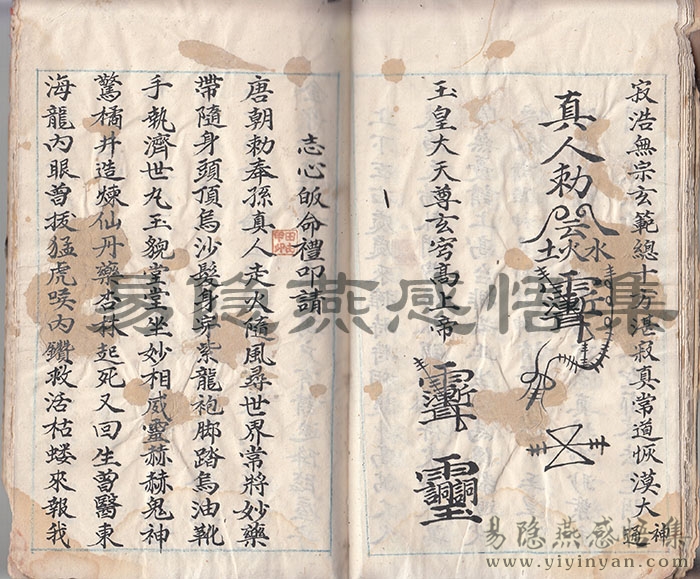 寂浩無宗玄範總十方湛寂真常道恢漠大神通
真人勅
土火水
玉皇大天尊玄穹高上帝
志心皈命禮叩請
唐朝勅奉孫真人走火隨風尋世界常將妙藥
帶隨身頭頂烏沙髮身穿紫龍袍脚踏烏油靴
手執濟世九玉貌堂堂坐妙相威靈赫赫鬼神
驚橘井造煉仙丹藥杏林起死又回生曽醫東
海龍內眼曽拔猛虎內鑽救活枯來報我
易隐燕感悟集
易隐燕感悟集
www.yiyinyan.com